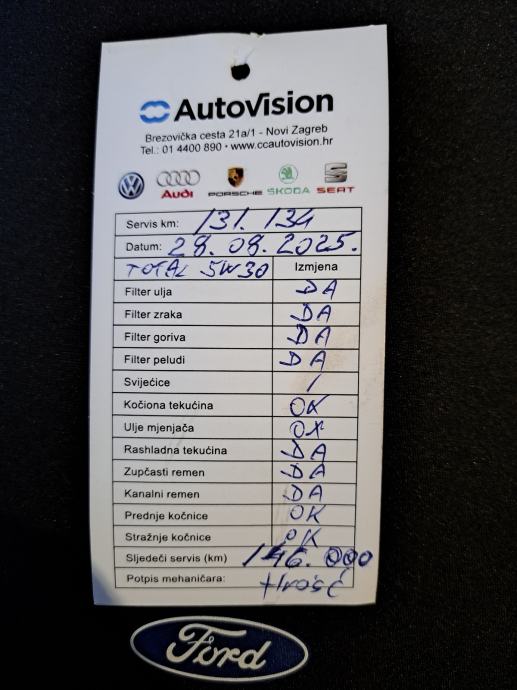 AutoVision
Brezovička cesta 21a/1 - Novi Zagreb
Tel.: 01 4400 890 • www.ccautovision.hr
Audi PORSCHE ŠKODA SEAT
Servis km: 131.134
Datum: 28.08.2025.
TOTAL 5W30 Izmjena
Filter ulja DA
Filter zraka DA
Filter goriva DA
Filter peludi DA
Svijećice /
Kočiona tekućina OK
Ulje mjenjača OK
Rashladna tekućina DA
Zupčasti remen DA
Kanalni remen DA
Prednje kočnice OK
Stražnje kočnice OK
Sljedeći servis (km) 146.000
Potpis mehaničara:
Ford